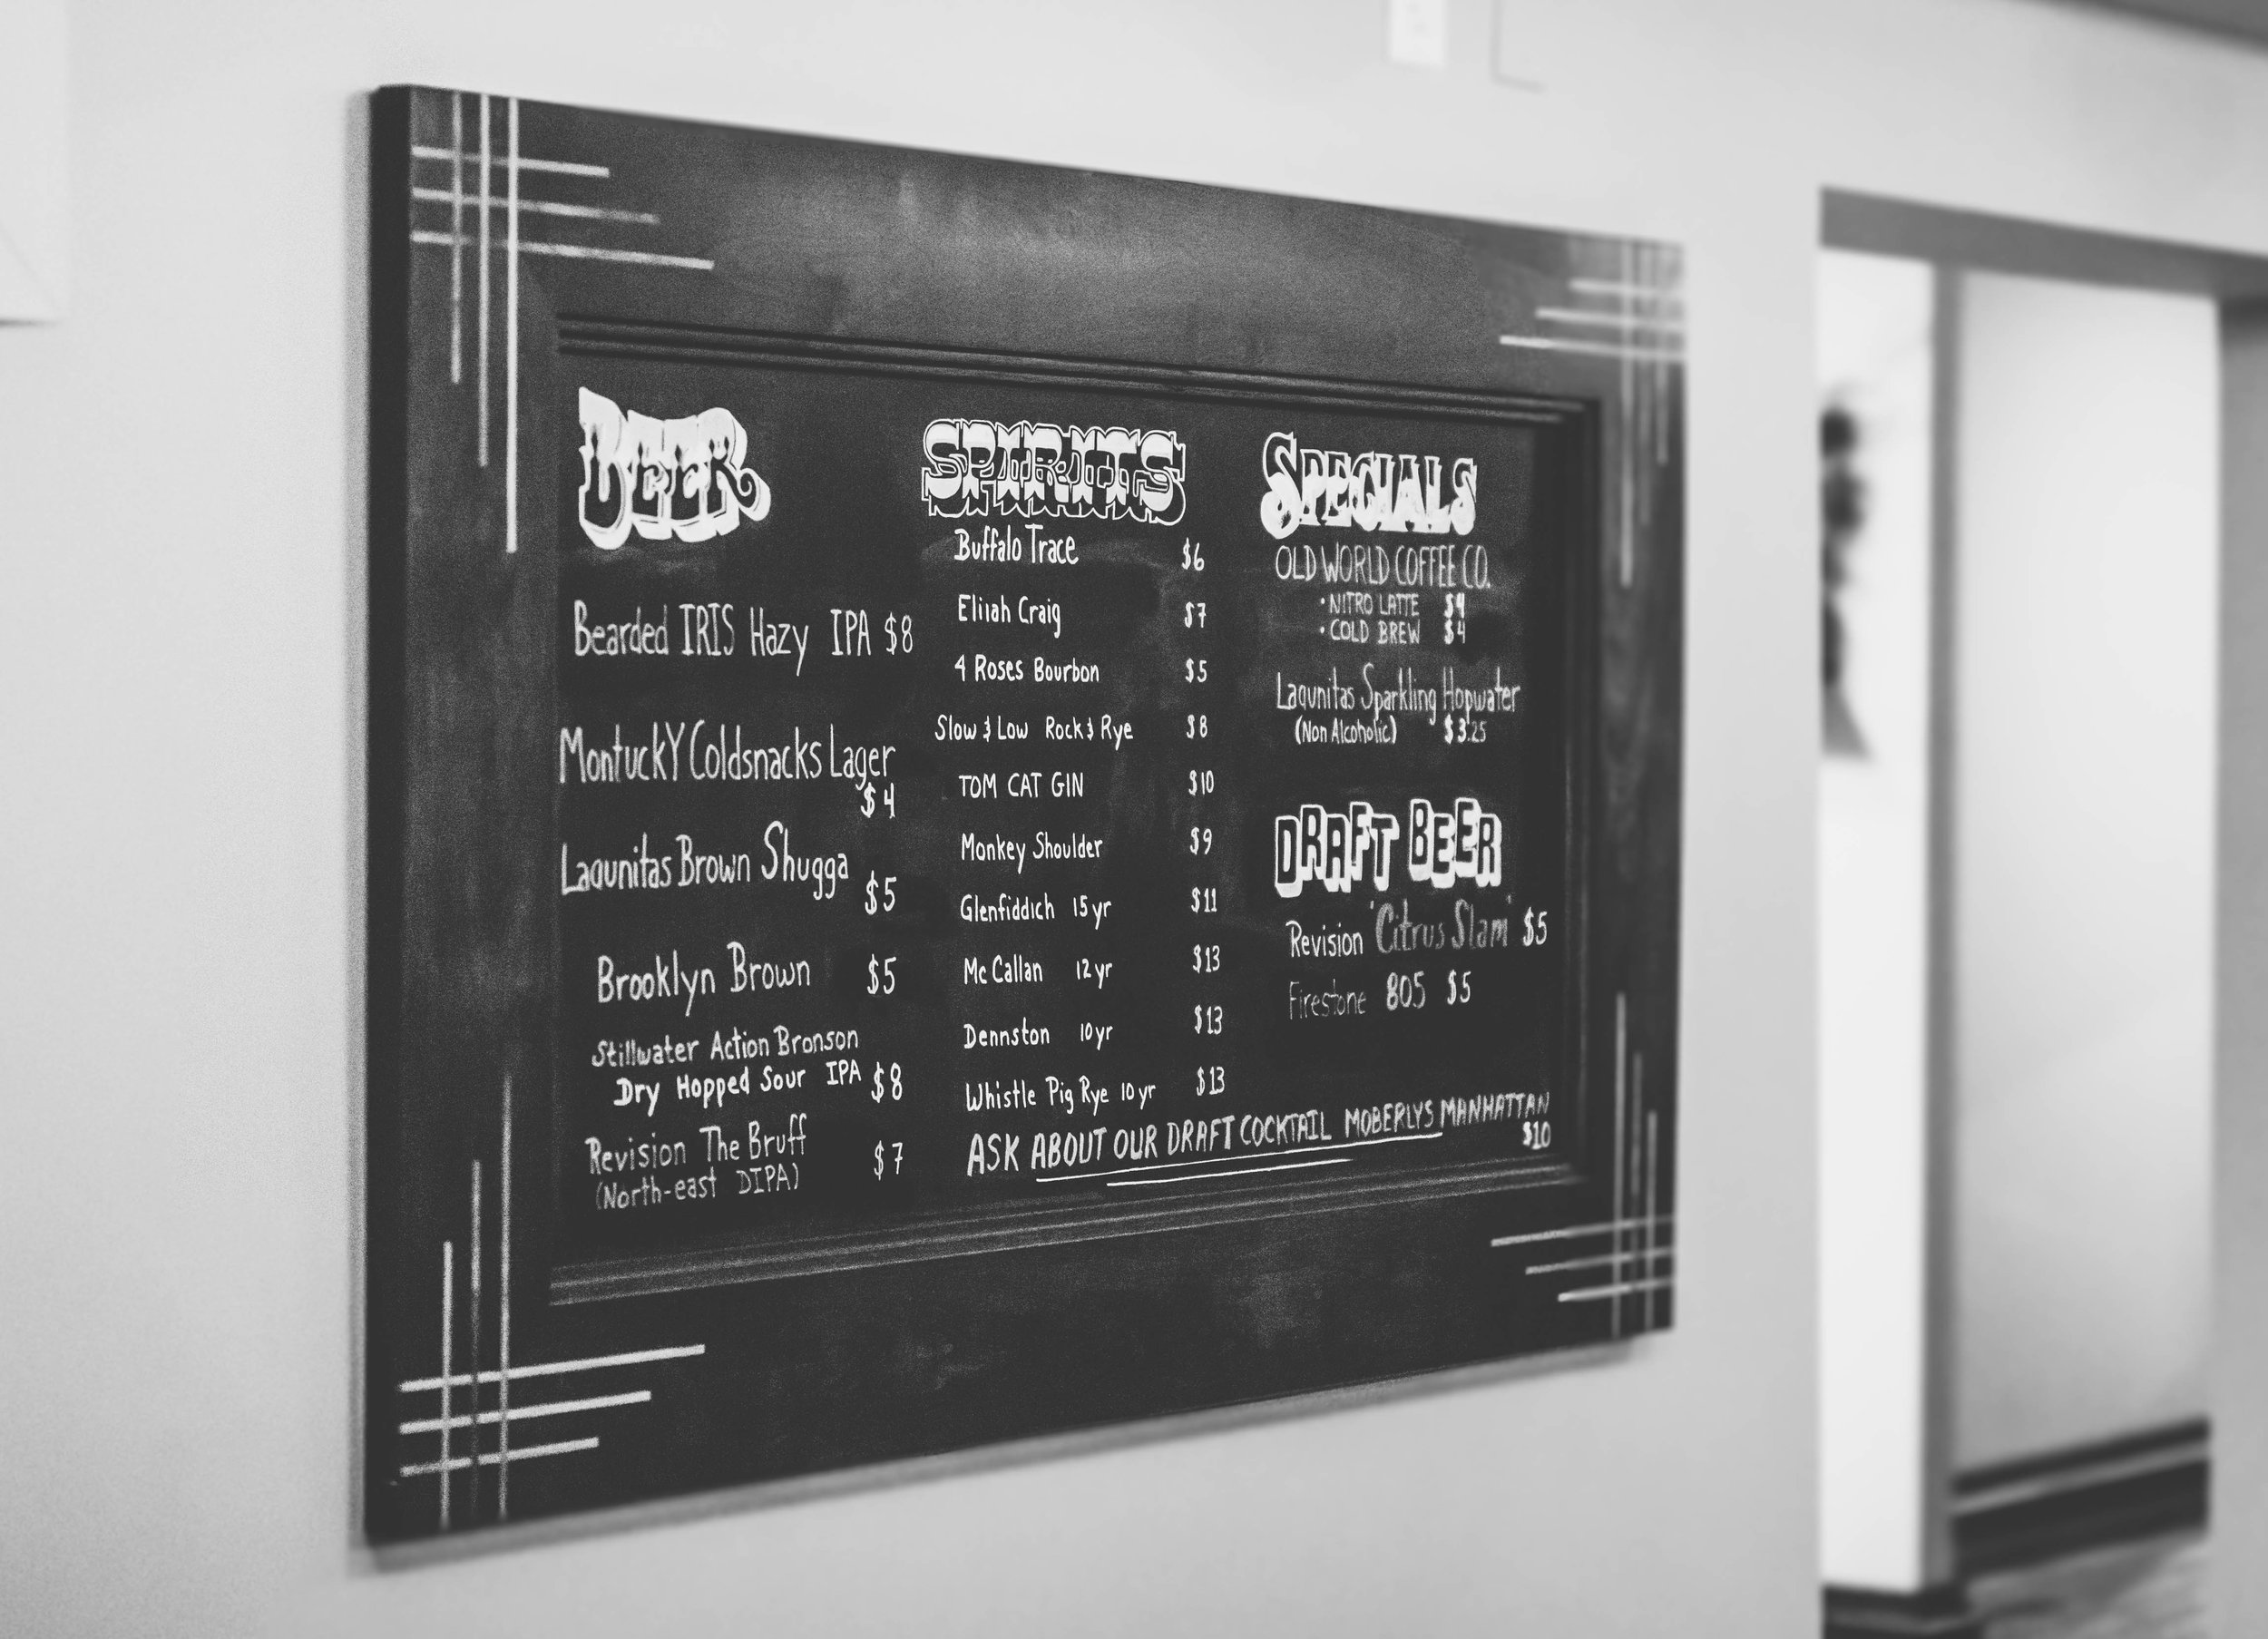 BEER
Bearded IRIS Hazy IPA $8
MontuckY Coldsnacks Lager
$4
Lagunitas Brown Shugga
$5
Brooklyn Brown $5
Stillwater Action Bronson
Dry Hopped Sour IPA $8
Revision The Bruff $7
(North-east DIPA)
SPIRITS
Buffalo Trace $6
Eliiah Craig $7
4 Roses Bourbon $5
Slow & Low Rock & Rye $8
TOM CAT GIN $10
Monkey Shoulder $9
Glenfiddich 15 yr $11
McCallan 12 yr $13
Dennston 10 yr $13
Whistle Pig Rye 10 yr $13
SPECIALS
OLD WORLD COFFEE CO.
• NITRO LATTE $4
• COLD BREW $4
Lagunitas Sparkling Hopwater
(Non Alcoholic) $3.25
DRAFT BEER
Revision 'Citrus Slam' $5
Firestone 805 $5
ASK ABOUT OUR DRAFT COCKTAIL MOBERLYS MANHATTAN
$10